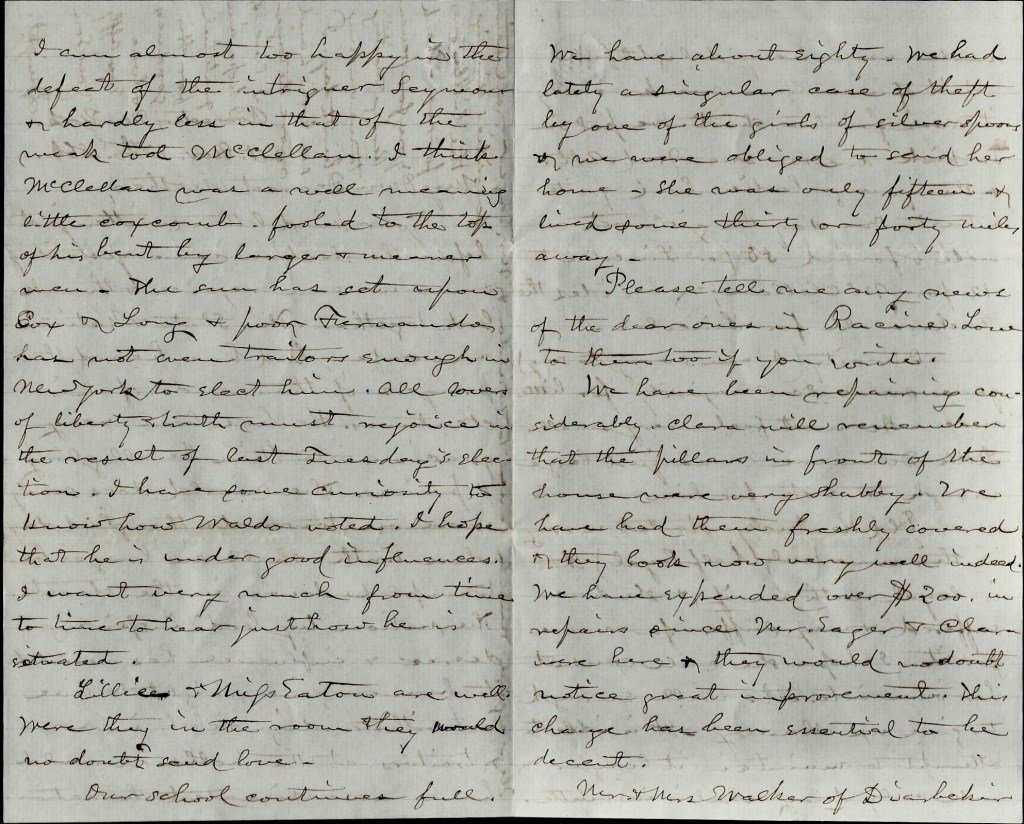 I am almost too happy in the
defeat of the intriguer Seymour
& hardly less in that of the
weak tool McClellan. I think
McClellan was a well meaning
little coxcomb. fooled to the top
of his bent by larger & meaner
men - The sun has set upon
Cox & Long & poor Fernando
has not even traitors enough in
New York to elect him. All lovers
of liberty & truth must rejoice in
the result of last Tuesday's Elec-
tion. I have some curiosity to
know how Waldo voted. I hope
that he is under good influences.
I want very much from time
to time to hear just how he is
situated.
Lillie & Miss Eaton are well.
Were they in the room they would
no doubt send love -
Our school continues full.
We have about Eighty. We had
lately a singular case of theft
by one of the girls of silver spoons
& we were obliged to send her
home - She was only fifteen &
lived some thirty or forty miles
away -
Please tell me any news
of the dear ones in Racine Love
to them too if you write.
We have been repairing con-
siderably. Clara will remember
that the pillars in front of the
house were very shabby. We
have had them freshly covered
& they look now very well indeed.
We have expended over $200. in
repairs since Mr. Eager & Clara
were here & they would no doubt
notice great improvement. This
change has been essential to be
decent.
Mr. & Mrs Walker of Diarbekir